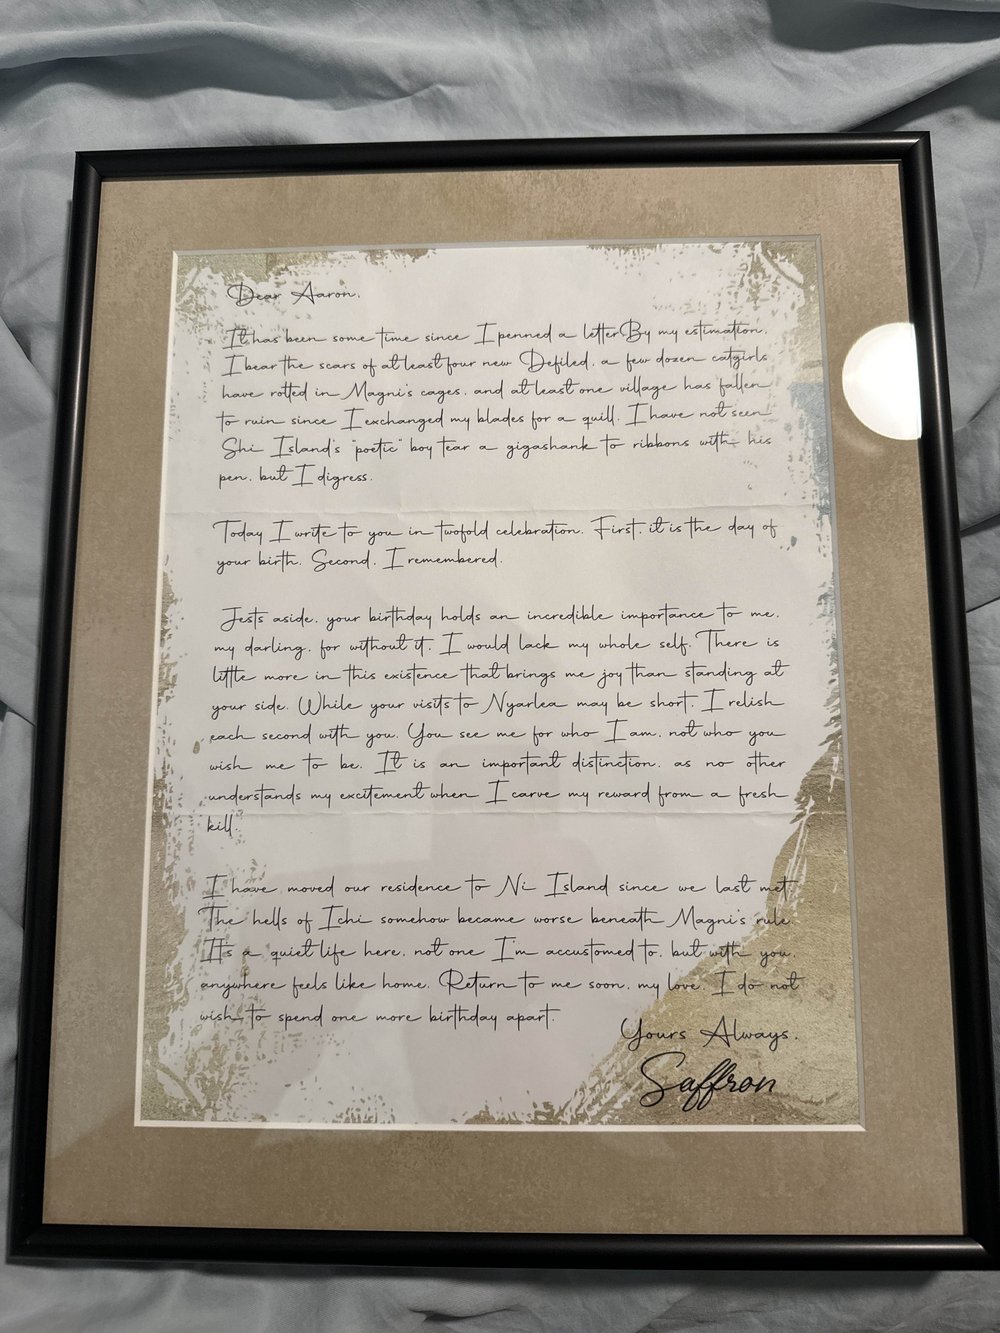 Dear Aaron,
It has been some time since I penned a letter. By my estimation,
I bear the scars of at least four new Defiled, a few dozen catgirls
have rotted in Magni's cages, and at least one village has fallen
to ruin since I exchanged my blades for a quill. I have not seen
Shi Island's "poetic" boy tear a gigashank to ribbons with his
pen, but I digress.
Today I write to you in twofold celebration. First, it is the day of
your birth. Second, I remembered.
Jests aside, your birthday holds an incredible importance to me,
my darling, for without it, I would lack my whole self. There is
little more in this existence that brings me joy than standing at
your side. While your visits to Nyarlea may be short, I relish
each second with you. You see me for who I am, not who you
wish me to be. It is an important distinction, as no other
understands my excitement when I carve my reward from a fresh
kill.
I have moved our residence to Ni Island since we last met.
The hells of Ichi somehow became worse beneath Magni's rule.
It's a quiet life here, not one I'm accustomed to, but with you,
anywhere feels like home. Return to me soon, my love. I do not
wish to spend one more birthday apart.
Yours Always,
Saffron